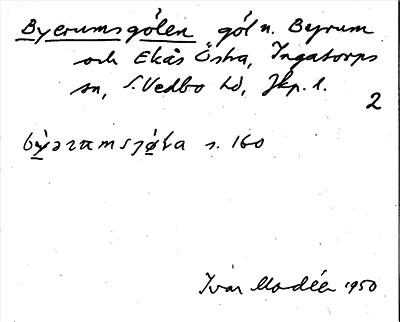 Byerumsgölen göl n. Byrum
och Ekås Östra, Ingatorps
sn, S. Vedbo hd, Jkp. l.
2
s. 160
Ivar Modéer 1950